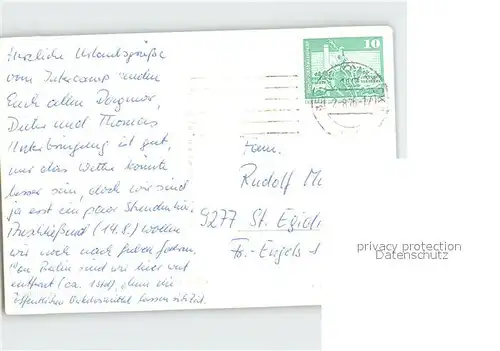 Herzliche Urlaubsgrüße
vom Intercamp senden
Euch allen Dagmar,
Dieter und Thomas
Unterbringung ist gut,
nur das Wetter könnte
besser sein, doch wir sind
ja erst ein paar Stunden hier.
Anschließend (14.8.) wollen
wir noch nach fahren.
Von Berlin sind wir hier weit
entfernt (ca. 1 Std), denn die
öffentlichen Verkehrsmittel lassen
10
Fam.
Rudolf M
9277 St. Egidi
Fr.-Engels-
privacy protection
Datenschutz